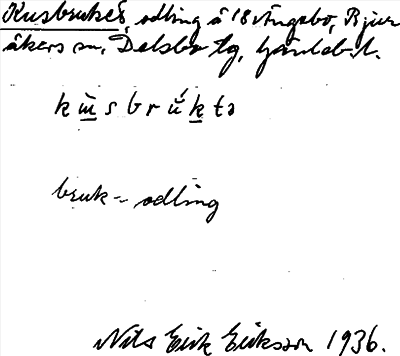 Kusbruket, odling å 18 Ängebo, Bjur-
åkers sn, Delsbo tg, Gävleb. l.
kùsbrúktə
bruk = odling
Nils Erik Eriksson 1936.